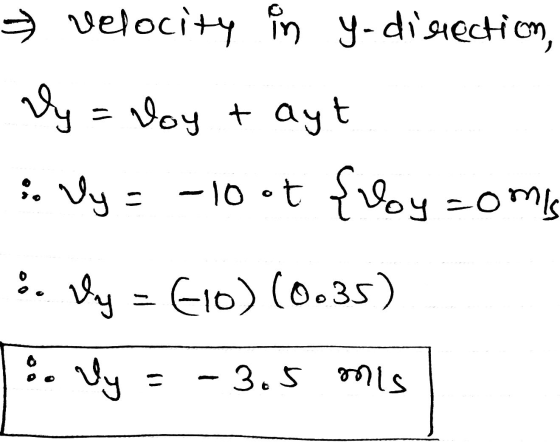 ⇒ velocity in y-direction,
Vy = Voy + ayt
∴ Vy = -10 · t {Voy = 0 m/s
∴ Vy = (-10) (0.35)
∴ Vy = - 3.5 m/s